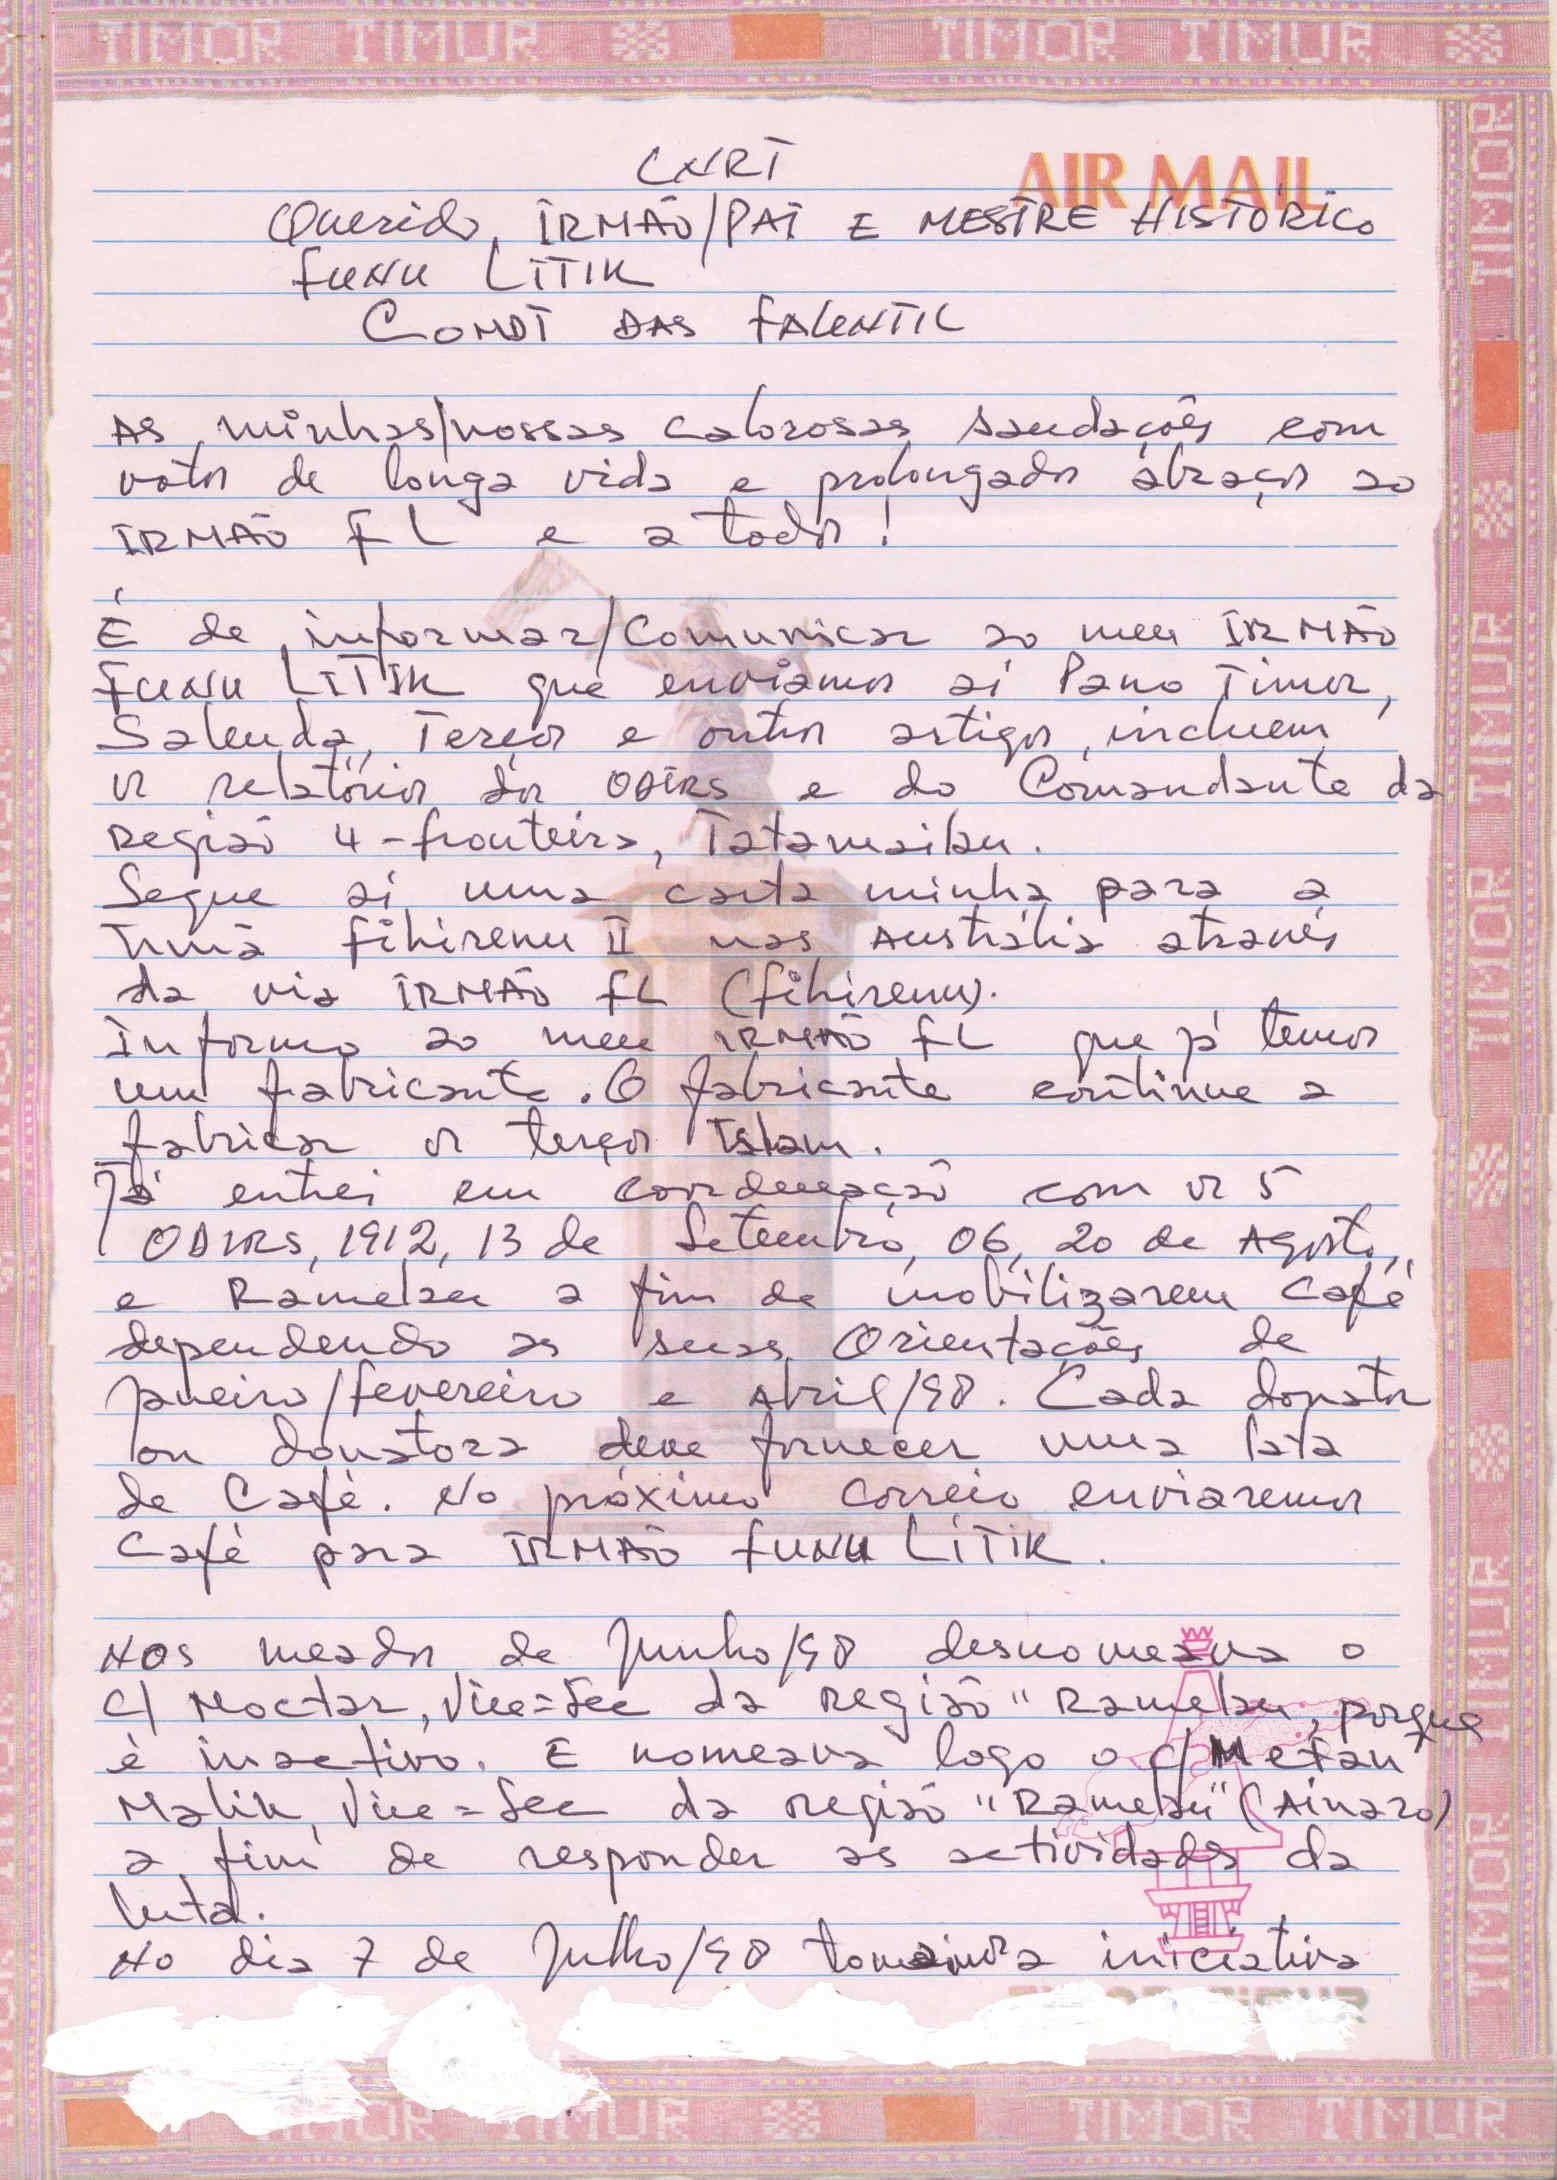 TIMOR TIMUR TIMOR TIMUR
AIR MAIL
CNRT
Querido, IRMÃO/PAI E MESTRE HISTÓRICO
FUNU LITIK
COMDT DAS FALENTIL
As minhas/nossas calorosas saudações com
votos de longa vida e prolongados abraços ao
IRMÃO FL e a todos!
É de informar/comunicar ao meu IRMÃO
FUNU LITIK que enviamos aí Pano Timor,
Salenda, Terços e outros artigos, incluem
os relatórios dos ODIRS e do Comandante da
Região 4-fronteira, Tatamailau.
Segue aí uma carta minha para a
Irmã Fihirenu II nas Austrália através
da via IRMÃO FL (Fihirenu).
Informo ao meu IRMÃO FL que já temos
um fabricante. O fabricante continue a
fabricar os terços Islam.
Já entrei em coordenação com os 5
ODIRS, 1912, 13 de Setembro, 06, 20 de Agosto,
e Ramelau a fim de mobilizarem Café
dependendo as suas Orientações de
Janeiro/fevereiro e Abril/98. Cada donator
ou donatora deve fornecer uma lata
de Café. No próximo correio enviaremos
Café para IRMÃO FUNU LITIK.
Nos meados de Junho/98 desnomeava o
C/ Moctar, Vice=Sec da região "Ramelau, porque
é inactivo. E nomeava logo o C/ Mefan
Malik, Vice=Sec da região "Ramelau" (Ainaro)
a fim de responder as actividades da
luta.
No dia 7 de Julho/98 iniciativa
TIMOR TIMUR TIMOR TIMUR
TIMOR TIMUR TIMOR TIMUR TIMOR